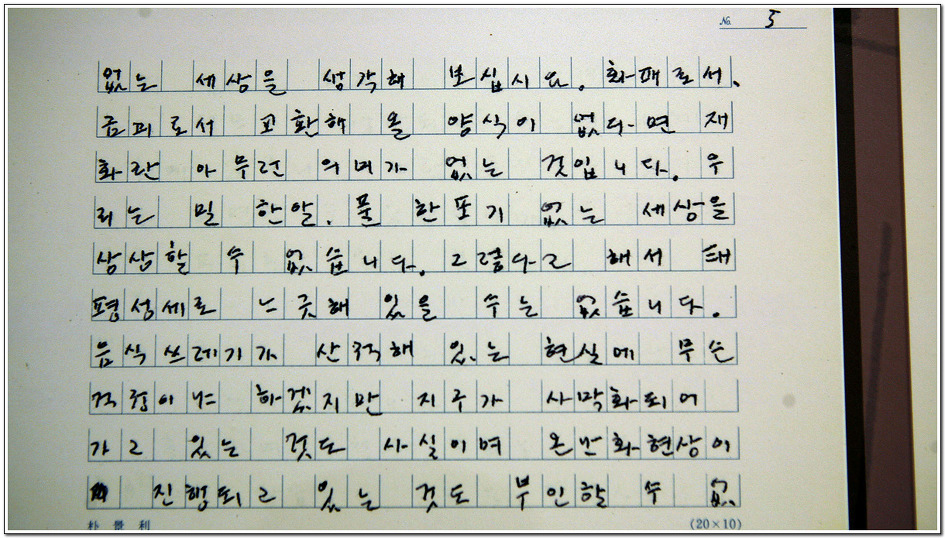 № 5
없는 세상을 생각해 보십시오. 화패로서,
금괴로서 교환해 올 양식이 없다면 재
화란 아무런 의미가 없는 것입니다. 우
리는 밀 한알, 풀 한포기 없는 세상을
상상할 수 없습니다. 그렇다고 해서 태
평성세로 느긋해 있을 수는 없습니다.
음식쓰레기가 산적해 있는 현실에 무슨
걱정이냐 하겠지만 지구가 사막화되어
가고 있는 것도 사실이며 온난화현상이
진행되고 있는 것도 부인할 수 없
朴景利 (20×10)